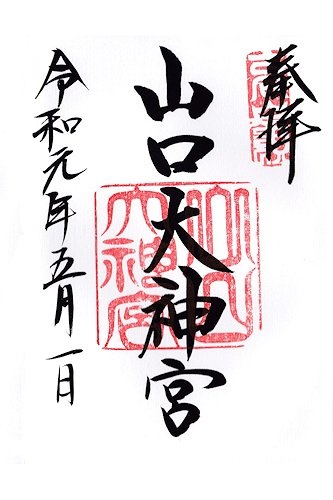 奉拝
山口大神宮
令和元年五月一日